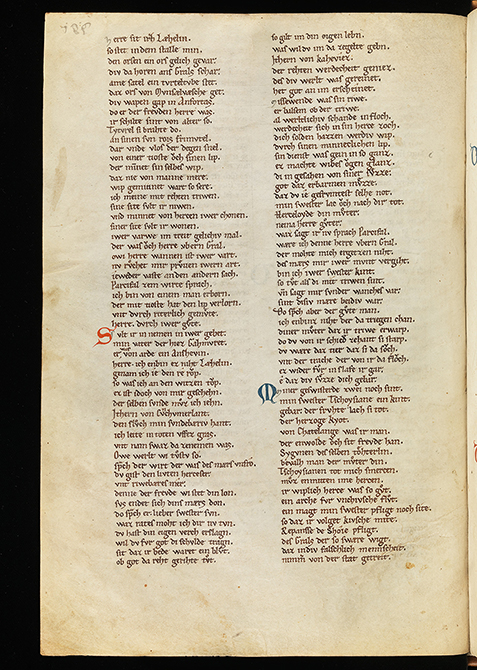 herre sit irz Læhelin.
so stet in dem stalle min.
den orsen ein ors gelich gevar.
div da horen ans grals schar.
ame satel ein tvrteltvbe stet.
daz ors von Mvnsalvæsche get.
div wapen gap in Anfortas.
do er der frevden herre was.
ir schilte sint von alter so.
Tytvrel si brahte do.
an sinen svn rois frimvtel.
dar vnde vlos der degen snel.
von einer tioste ŏch sinen lip.
der minnet sin selbes wip.
daz nie von manne mere.
wip geminnet wart so sere.
ich meine mit rehten triwen.
sine site svlt ir niwen.
vnd minnet von herzen iwer chonen.
siner site svlt ir wonen.
iwer varwe im treit gelichiv mal.
der was ŏch herre vbern gral.
owi herre wannen ist iwer vart.
nv rvchet mir prvven iwern art.
ietweder vaste andern ansach.
Parcifal zem wirte sprach.
ich bin von einem man erborn.
der mit tioste hat den lip verlorn.
vnt dvrch riterlich gemvte.
herre. dvrch iwer gvte.
Svlt ir in nemen in iwer gebet.
min vater der hiez Gahmvret.
er was von arde ein Anshevin.
herre. ich enbin ez niht Læhelin.
genam ich ie den re rŏp.
so was ich an den witzen tŏp.
ez ist idoch von mir geschehn.
der selben svnde mvz ich iehn.
Ithern von Chvchvmerlant.
den slvch min svndebære hant.
ich leite in toten vffez gras.
vnt nam swaz da zenemen was.
Owe werlt wie tvstv so.
sprach der wirt. der was des mærs vnfro.
dv gist den livten herzeser.
vnt riwebæres mer.
denne der frevde. wi stet din lon.
svs endet sich dins mærs don.
do sprach er lieber swester svn.
waz rates moht ich dir nv tvn.
dv hast din eigen verch erslagn.
wil dv fvr got di schvlde tragn.
sit daz ir bede waret ein blvt.
ob got da reht gerihtet tvt.
so gilt im din eigen lebn.
waz wildv im da ze gelte gebn.
Ithern von kaheviez.
der rehten werdecheit geniez.
des div werlt was gereinet.
het got an im erscheinet.
missewende was sin riwe.
er balsem ob der triwe.
al werltlichiv schande in floch.
werdecheit sich in sin herze zoch.
dich solden hazzen werdiv wip.
dvrch sinen minneclichen lip.
sin dienst was gein in so ganz.
ez machte wibes ŏgen glanz.
di in gesahen von siner sŏzze.
got daz erbarmen mvzze.
daz dv ie gefrvmtest selhe not.
min swester lac ŏch nach dir tot.
Herzeloyde din mvter.
neina herre gvter.
waz sagt ir nv sprach Parcifal.
wære ich denne herre vbern gral.
der mohte mich ergetzen niht.
des mærs mir iwer mvnt vergiht.
bin ich iwer swester kint.
so tvt als di mit triwen sint.
vnt sagt mir svnder wanches var.
sint disiv mære beidiv war.
Do sprach aber der gvte man.
ich enbinz niht der da triegen chan.
diner mvter daz ir triwe erwarp.
do dv von ir schiede zehant si starp.
dv wære daz tier daz si da sŏch.
vnt der trache der von ir da flŏch.
ez widerfvr in slafe ir gar.
e daz div sŏzze dich gebar.
Miner geswisterde zwei noch sint.
min swester Tschoysiane ein kint.
gebar. der frvhte lach si tot.
der herzoge kyot.
von Chatelange was ir man.
der enwolde ŏch sit frevde han.
Sygvnen des selben tohterlin.
bevalh man der mvter din.
Tschoysianen tot mich smerzen.
mvz enmitten ime herzen.
ir wiplich herze was so gvt.
ein arche fvr vnkivsche flvt.
ein magt min swester pfligt noch site.
so daz ir volget kivsche mite.
Repansse de Shoie pfligt.
des grals der so swære wigt.
daz indiv falschlich menniscbeit.
nimmer von der stat getreit.